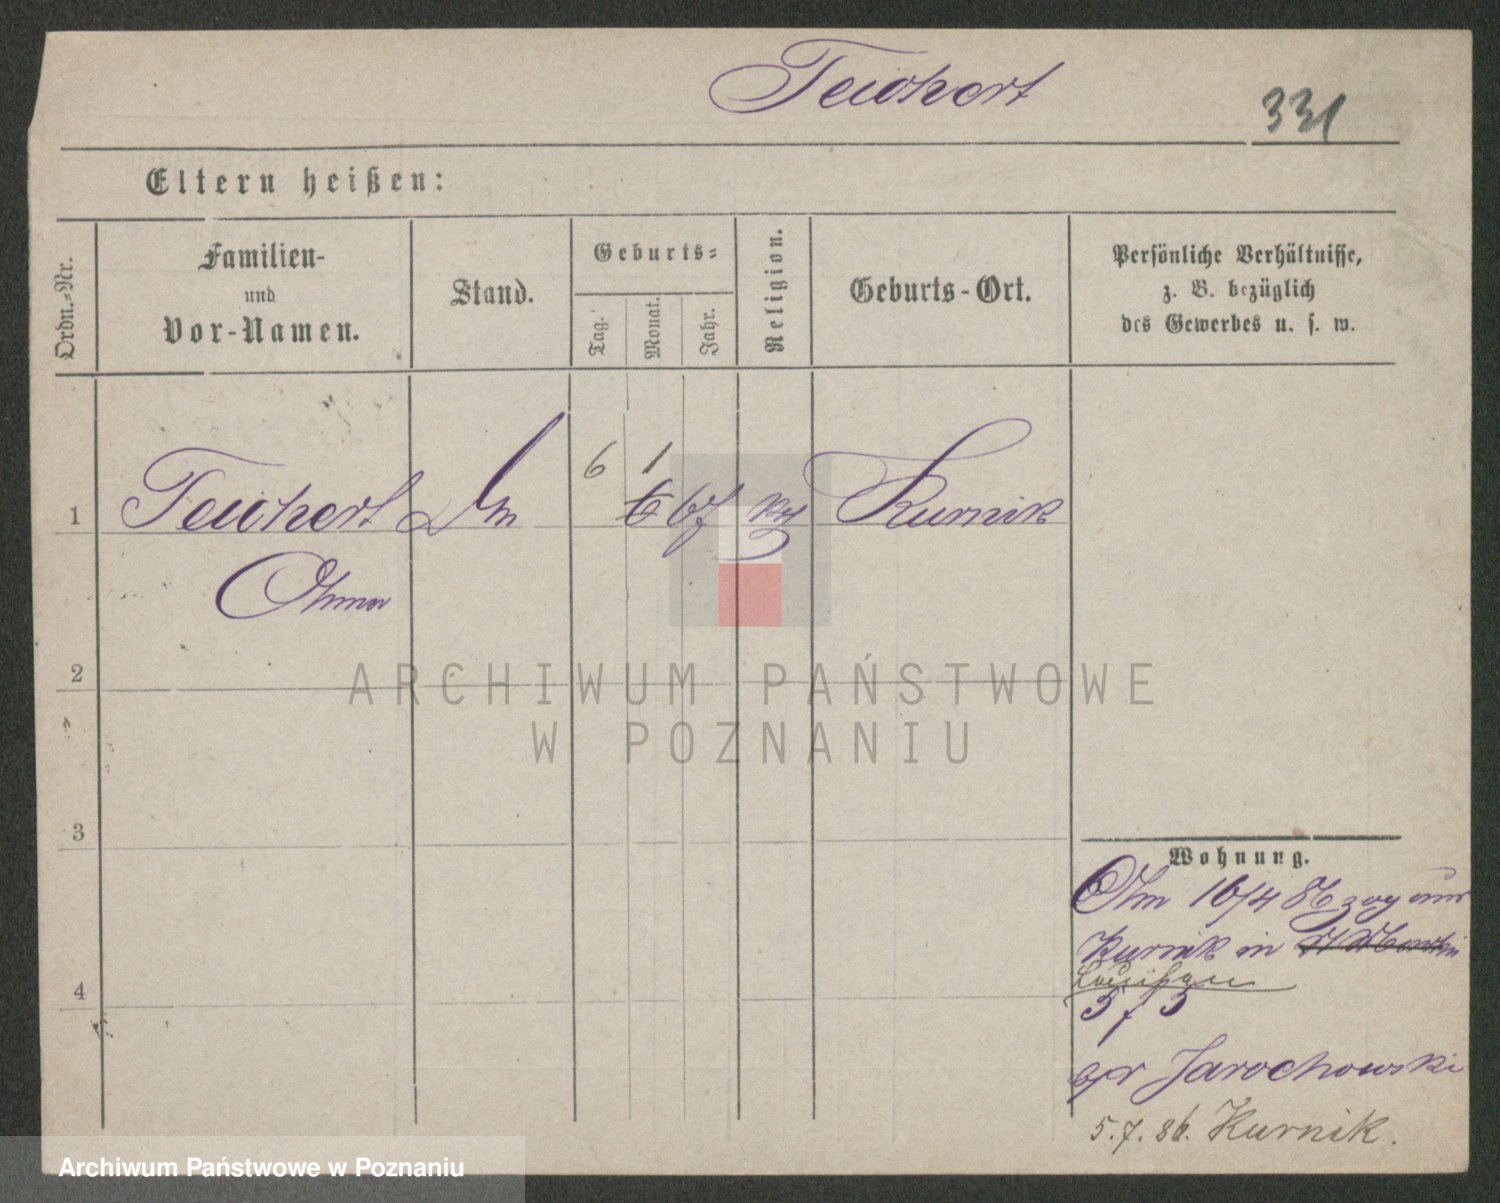 Teichert
331
Eltern heißen:
Ordn.-Nr.
Familien-
und
Vor-Namen.
Stand.
Geburts-
Tag.
Monat.
Jahr.
Religion.
Geburts-Ort.
Persönliche Verhältnisse,
z. B. bezüglich
des Gewerbes u. s. w.
6 1
1 Teichert 6 67 Kurnik
2
ARCHIWUM PAŃSTWOWE
W POZNANIU
3
Wohnung.
16/4 86 zog
Kurnik in
4
5/3
Jarochowski
5.7.86. Kurnik.
Archiwum Państwowe w Poznaniu